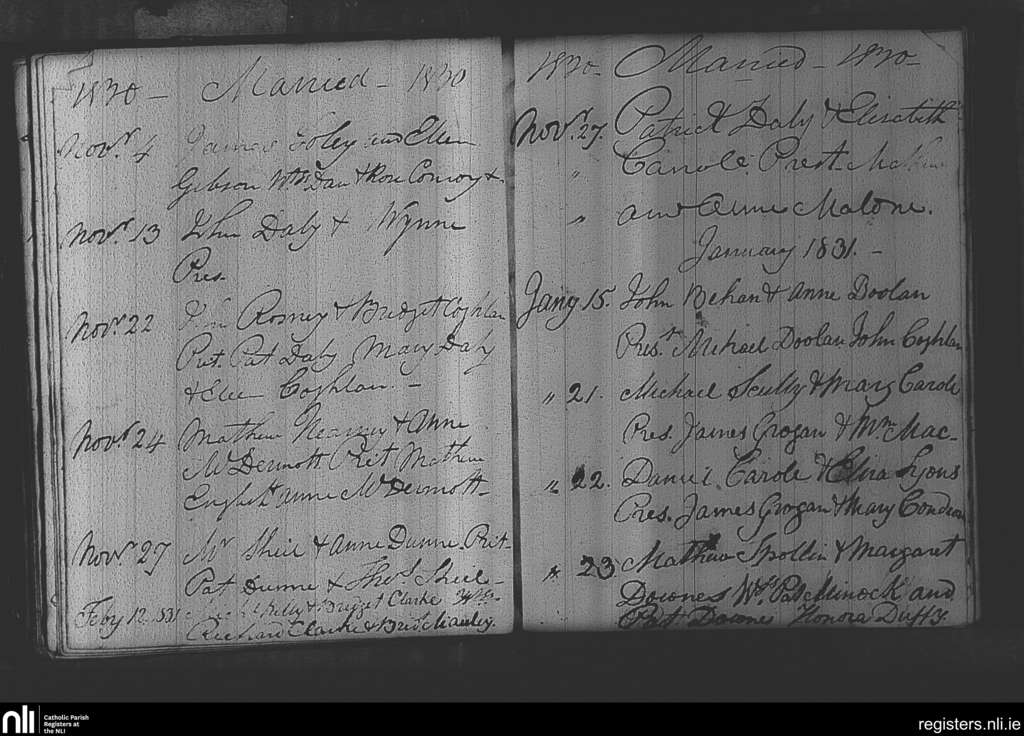 1830 - Married - 1830
Novr. 4 James Foley and Ellen
Gibson Wts. Dan & Rose Conroy &.
Novr. 13 John Daly & Wynne
Pres.
Novr. 22 Rosney & Bridget Coghlan
Prst. Pat Daly Mary Daly
& Coghlan. -
Novr. 24 Mathew & Anne
McDermott Prst Mathew
English Anne McDermott-
Novr. 27 Mr Sheil & Anne Dunne. Prst-
Pat Dunne & Thos. Sheil-
Feby 12. 1831 & Bridget Clarke
Richard Clarke & Brid.
1830- Married - 1830-
Novr. 27. Patrick Daly & Elisabeth
" Carrole. Prest.
" and Anne Malone.
January 1831. -
Jany 15. John Behan & Anne Doolan
Prest. Mihael Doolan John Coghlan
" 21. Michael Scully & Mary Carole
Pres. James Grogan & Wm. Mac-
" 22. Daniel Carole & Eliza Lyons
Pres. James Grogan & Mary Condron
" 23 Mathew Spollin & Margaret
Downes Wts. Pat Minock and
Pat Downes Honora Duffy.
nli Catholic Parish
Registers at
the NLI
registers.nli.ie